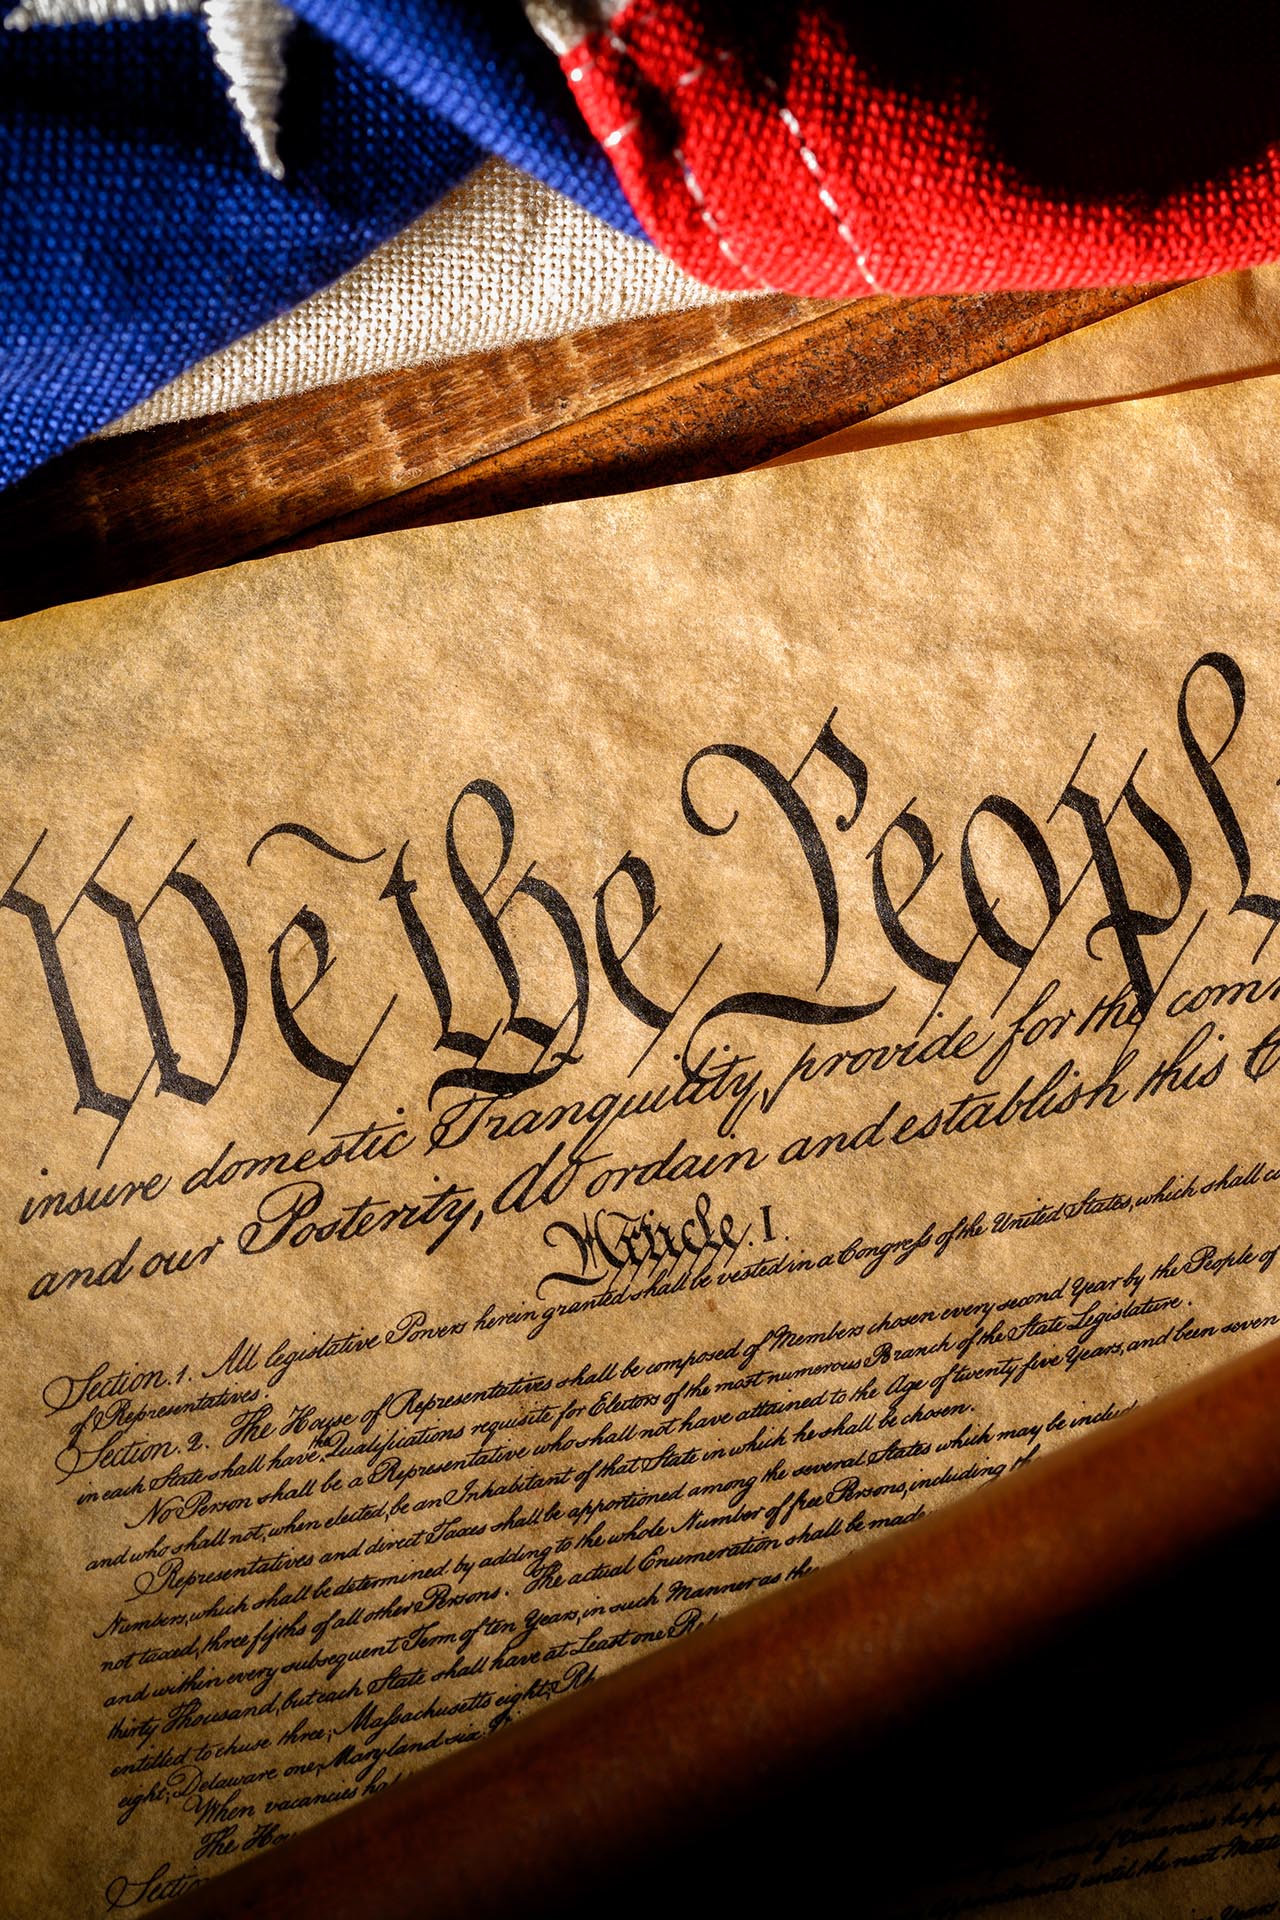 We the Peopl
insure domestic Tranquility, provide for the comm
and our Posterity, do ordain and establish this C
Article. I.
Section. 1. All legislative Powers herein granted shall be vested in a Congress of the United States, which shall co
of Representatives.
Section. 2. The House of Representatives shall be composed of Members chosen every second Year by the People of
in each State shall have the Qualifications requisite for Electors of the most numerous Branch of the State Legislature.
No Person shall be a Representative who shall not have attained to the Age of twenty five Years, and been seven
and who shall not, when elected, be an Inhabitant of that State in which he shall be chosen.
Representatives and direct Taxes shall be apportioned among the several States which may be includ
Numbers, which shall be determined by adding to the whole Number of free Persons, including th
not taxed, three fifths of all other Persons. The actual Enumeration shall be made
and within every subsequent Term of ten Years, in such Manner as the
thirty Thousand, but each State shall have at Least one Re
entitled to chuse three, Massachusetts eight, Rh
eight, Delaware one, Maryland six
When vacancies ha
The Hou
Sectio
until the next Meet